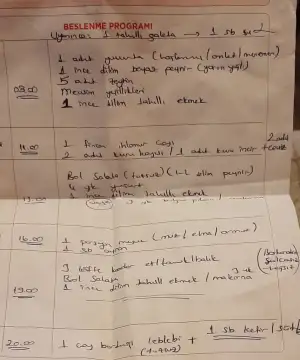 BESLENME PROGRAMI
1 tahıllı galeta → 1 sb su
1 adet yumurta (haşlanmış / omlet / menemen)
1 ince dilim beyaz peynir (yarım yağlı)
5 adet zeytin
Mevsim yeşillikleri
1 ince dilim tahıllı ekmek
11.00
1 fincan ıhlamur çayı
2 adet kuru kayısı / 1 adet kuru incir + 2 adet ceviz
Bol Salata (1-2 dilim peynir)
1 ince dilim tahıllı ekmek
16.00
1 porsiyon meyve (muz / elma / armut)
1 sb
et / tavuk / balık
Bol Salata
19.00
1 ince dilim tahıllı ekmek / makarna
20.00
1 çay bardağı leblebi +
1 sb kefir / süt